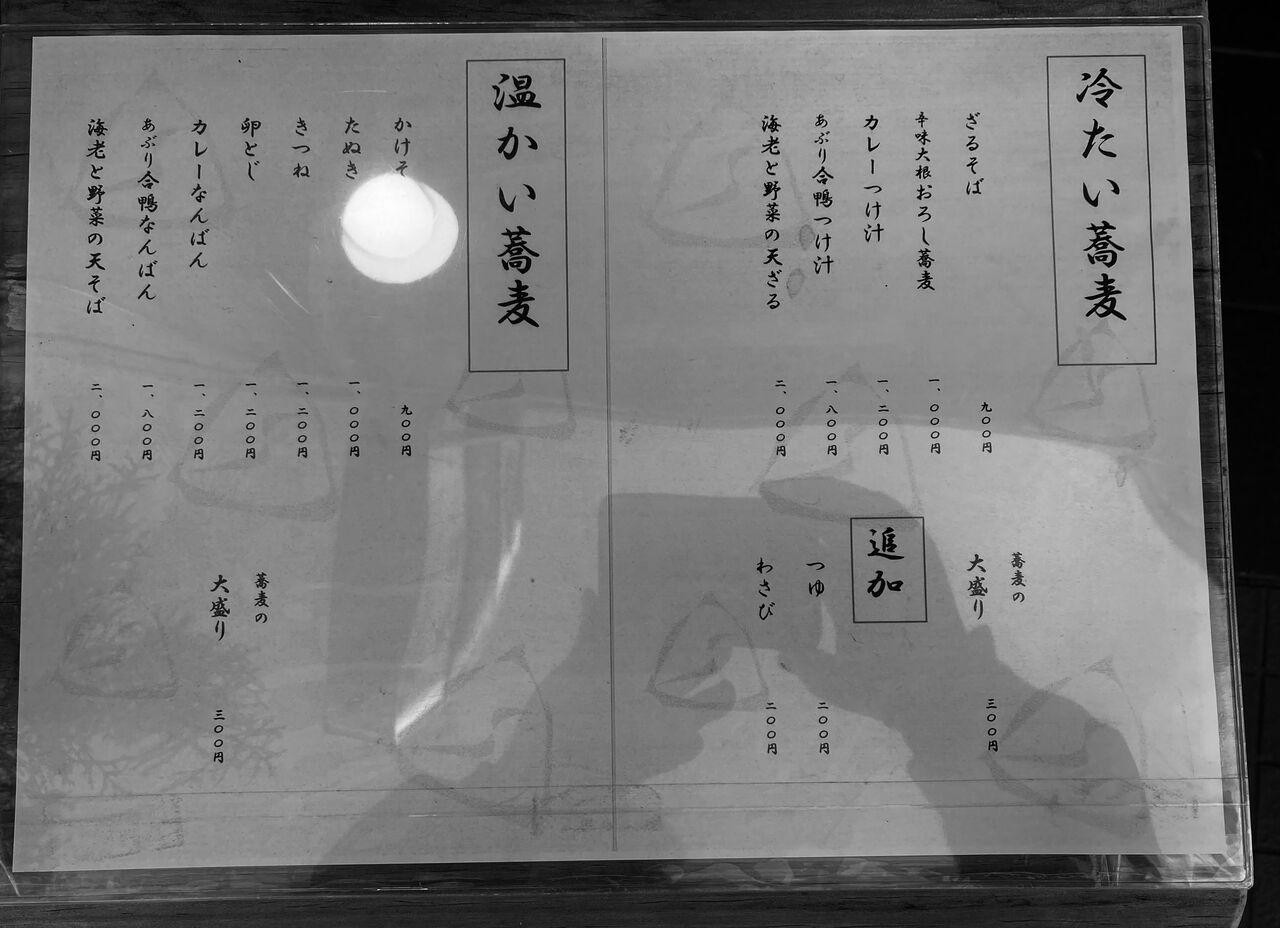 冷たい蕎麦
ざるそば 九〇〇円
辛味大根おろし蕎麦 一、〇〇〇円
カレーつけ汁 一、二〇〇円
あぶり合鴨つけ汁 一、八〇〇円
海老と野菜の天ざる 二、〇〇〇円
蕎麦の
大盛り 三〇〇円
追加
つゆ 二〇〇円
わさび 二〇〇円
温かい蕎麦
かけそ 九〇〇円
たぬき 一、〇〇〇円
きつね 一、二〇〇円
卵とじ 一、二〇〇円
カレーなんばん 一、二〇〇円
あぶり合鴨なんばん 一、八〇〇円
海老と野菜の天そば 二、〇〇〇円
蕎麦の
大盛り 三〇〇円